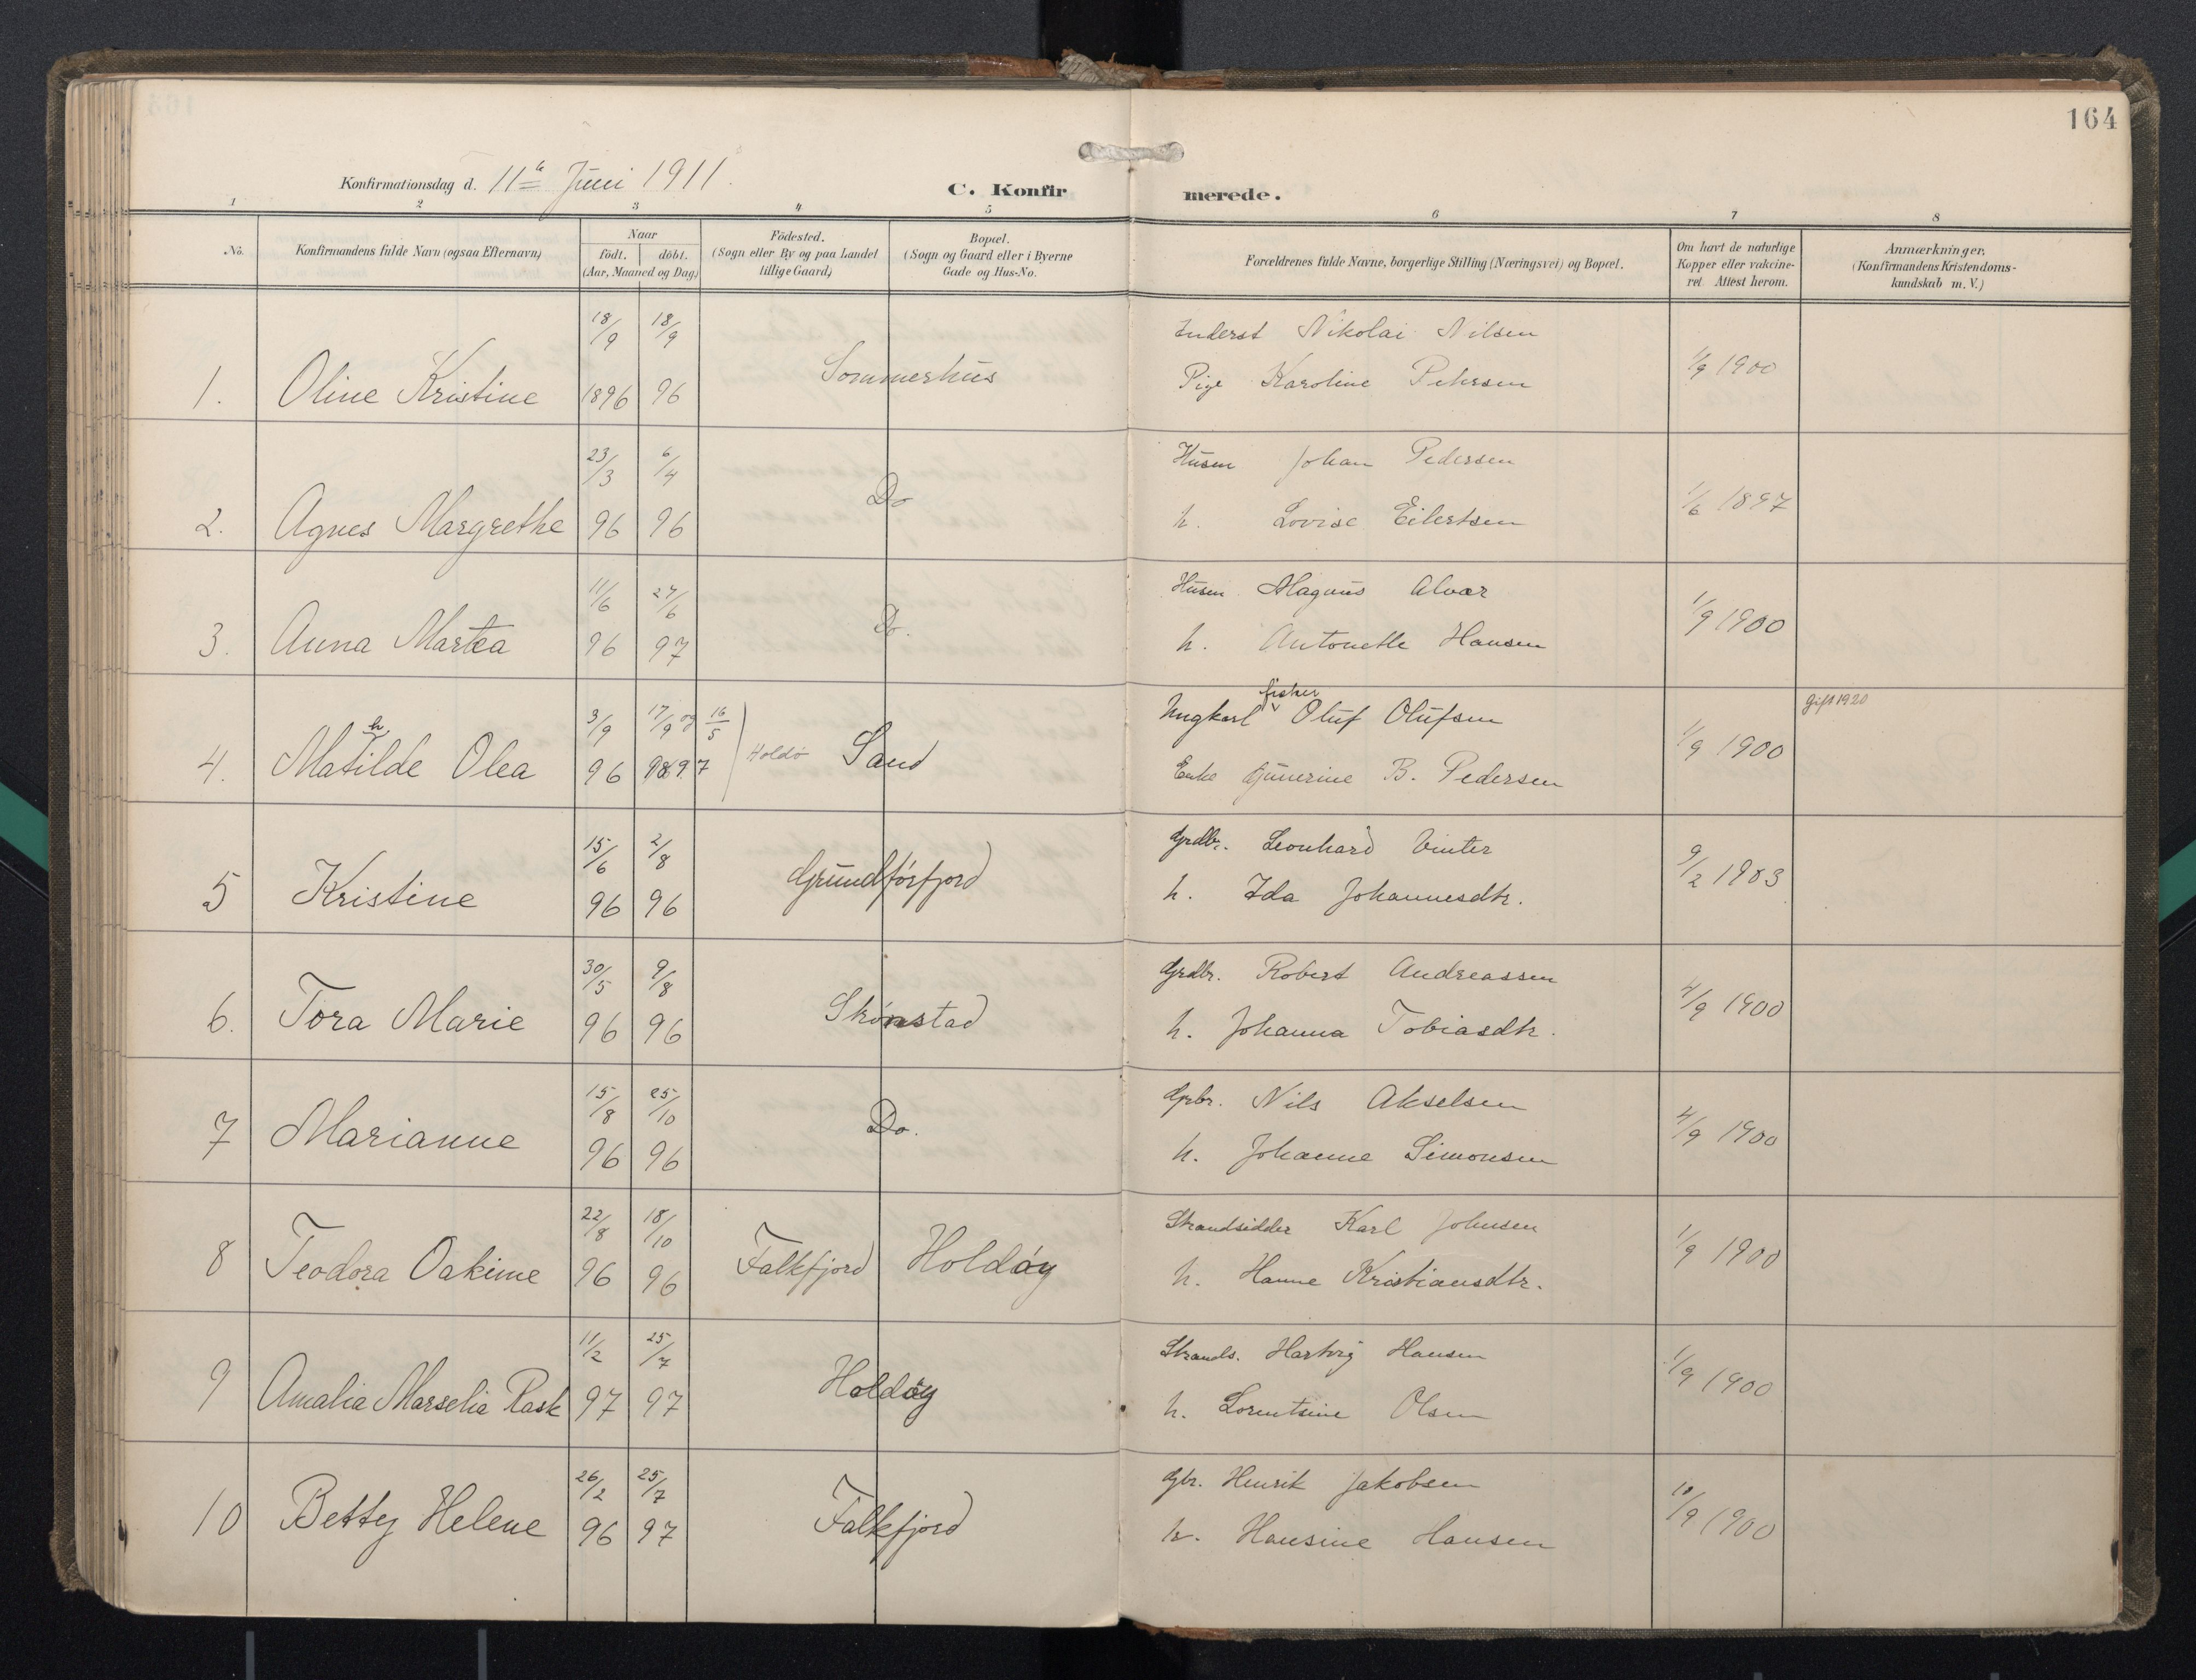 164
Konfirmationsdag d. 11te Juni 1911.
C. Konfirmerede.
1 2 3 4 5 6 7 8
No. Konfirmandens fulde Navn (ogsaa Efternavn) Naar födt. döbt. (Aar, Maaned og Dag) Födested. (Sogn eller By og paa Landet tillige Gaard) Bopæl. (Sogn og Gaard eller i Byerne Gade og Hus-No. Forældrenes fulde Navne, borgerlige Stilling (Næringsvei) og Bopæl. Om havt de naturlige Kopper eller vakcineret. Attest herom. Anmærkninger. (Konfirmandens Kristendomskundskab m. V.)
18/9 18/9 Inderst Nikolai Nilsen
1. Oline Kristine 1896 96 Sommerhus Pige Karoline Pehrsen 1/9 1900
23/3 6/4 Husm Johan Pedersen
2. Agnes Margrethe 96 96 Do h. Lovise Eilertsen 1/6 1897
11/6 27/6 Husm. Magnus Alvær
3. Anna Martea 96 97 Do. h. Antonette Hansen 1/9 1900
3/9 17/9 og 16/5 Ungkarl fisker Oluf Olufsen Gift 1920
4. Mathilde Olea 96 97 Holdö Sand Enke Gunerine B. Pedersen 1/9 1900
15/6 2/8 Grdbr. Leonhard Vinter
5 Kristine 96 96 Grundførfjord h. Ida Johannesdtr. 9/2 1903
30/5 9/8 Grdbr. Robert Andreassen
6. Tora Marie 96 96 Skønstad h. Johanna Tobiasdtr. 4/9 1900
15/8 25/10 Grbr. Nils Akselsen
7 Marianne 96 96 Do. h. Johanne Simonsen 4/9 1900
22/8 18/10 Strandsidder Karl Johnsen
8 Teodora Oakime 96 96 Falkfjord Holdøy h. Hanne Kristiansdtr. 1/9 1900
11/2 25/7 Strands. Hartvig Hansen
9 Amalia Marselia Rask 97 97 Holdøy h. Lorentsine Olsen 1/9 1900
26/2 25/7 Gbr. Henrik Jakobsen
10 Betty Helene 96 97 Falkfjord h. Hansine Hansen 10/9 1900